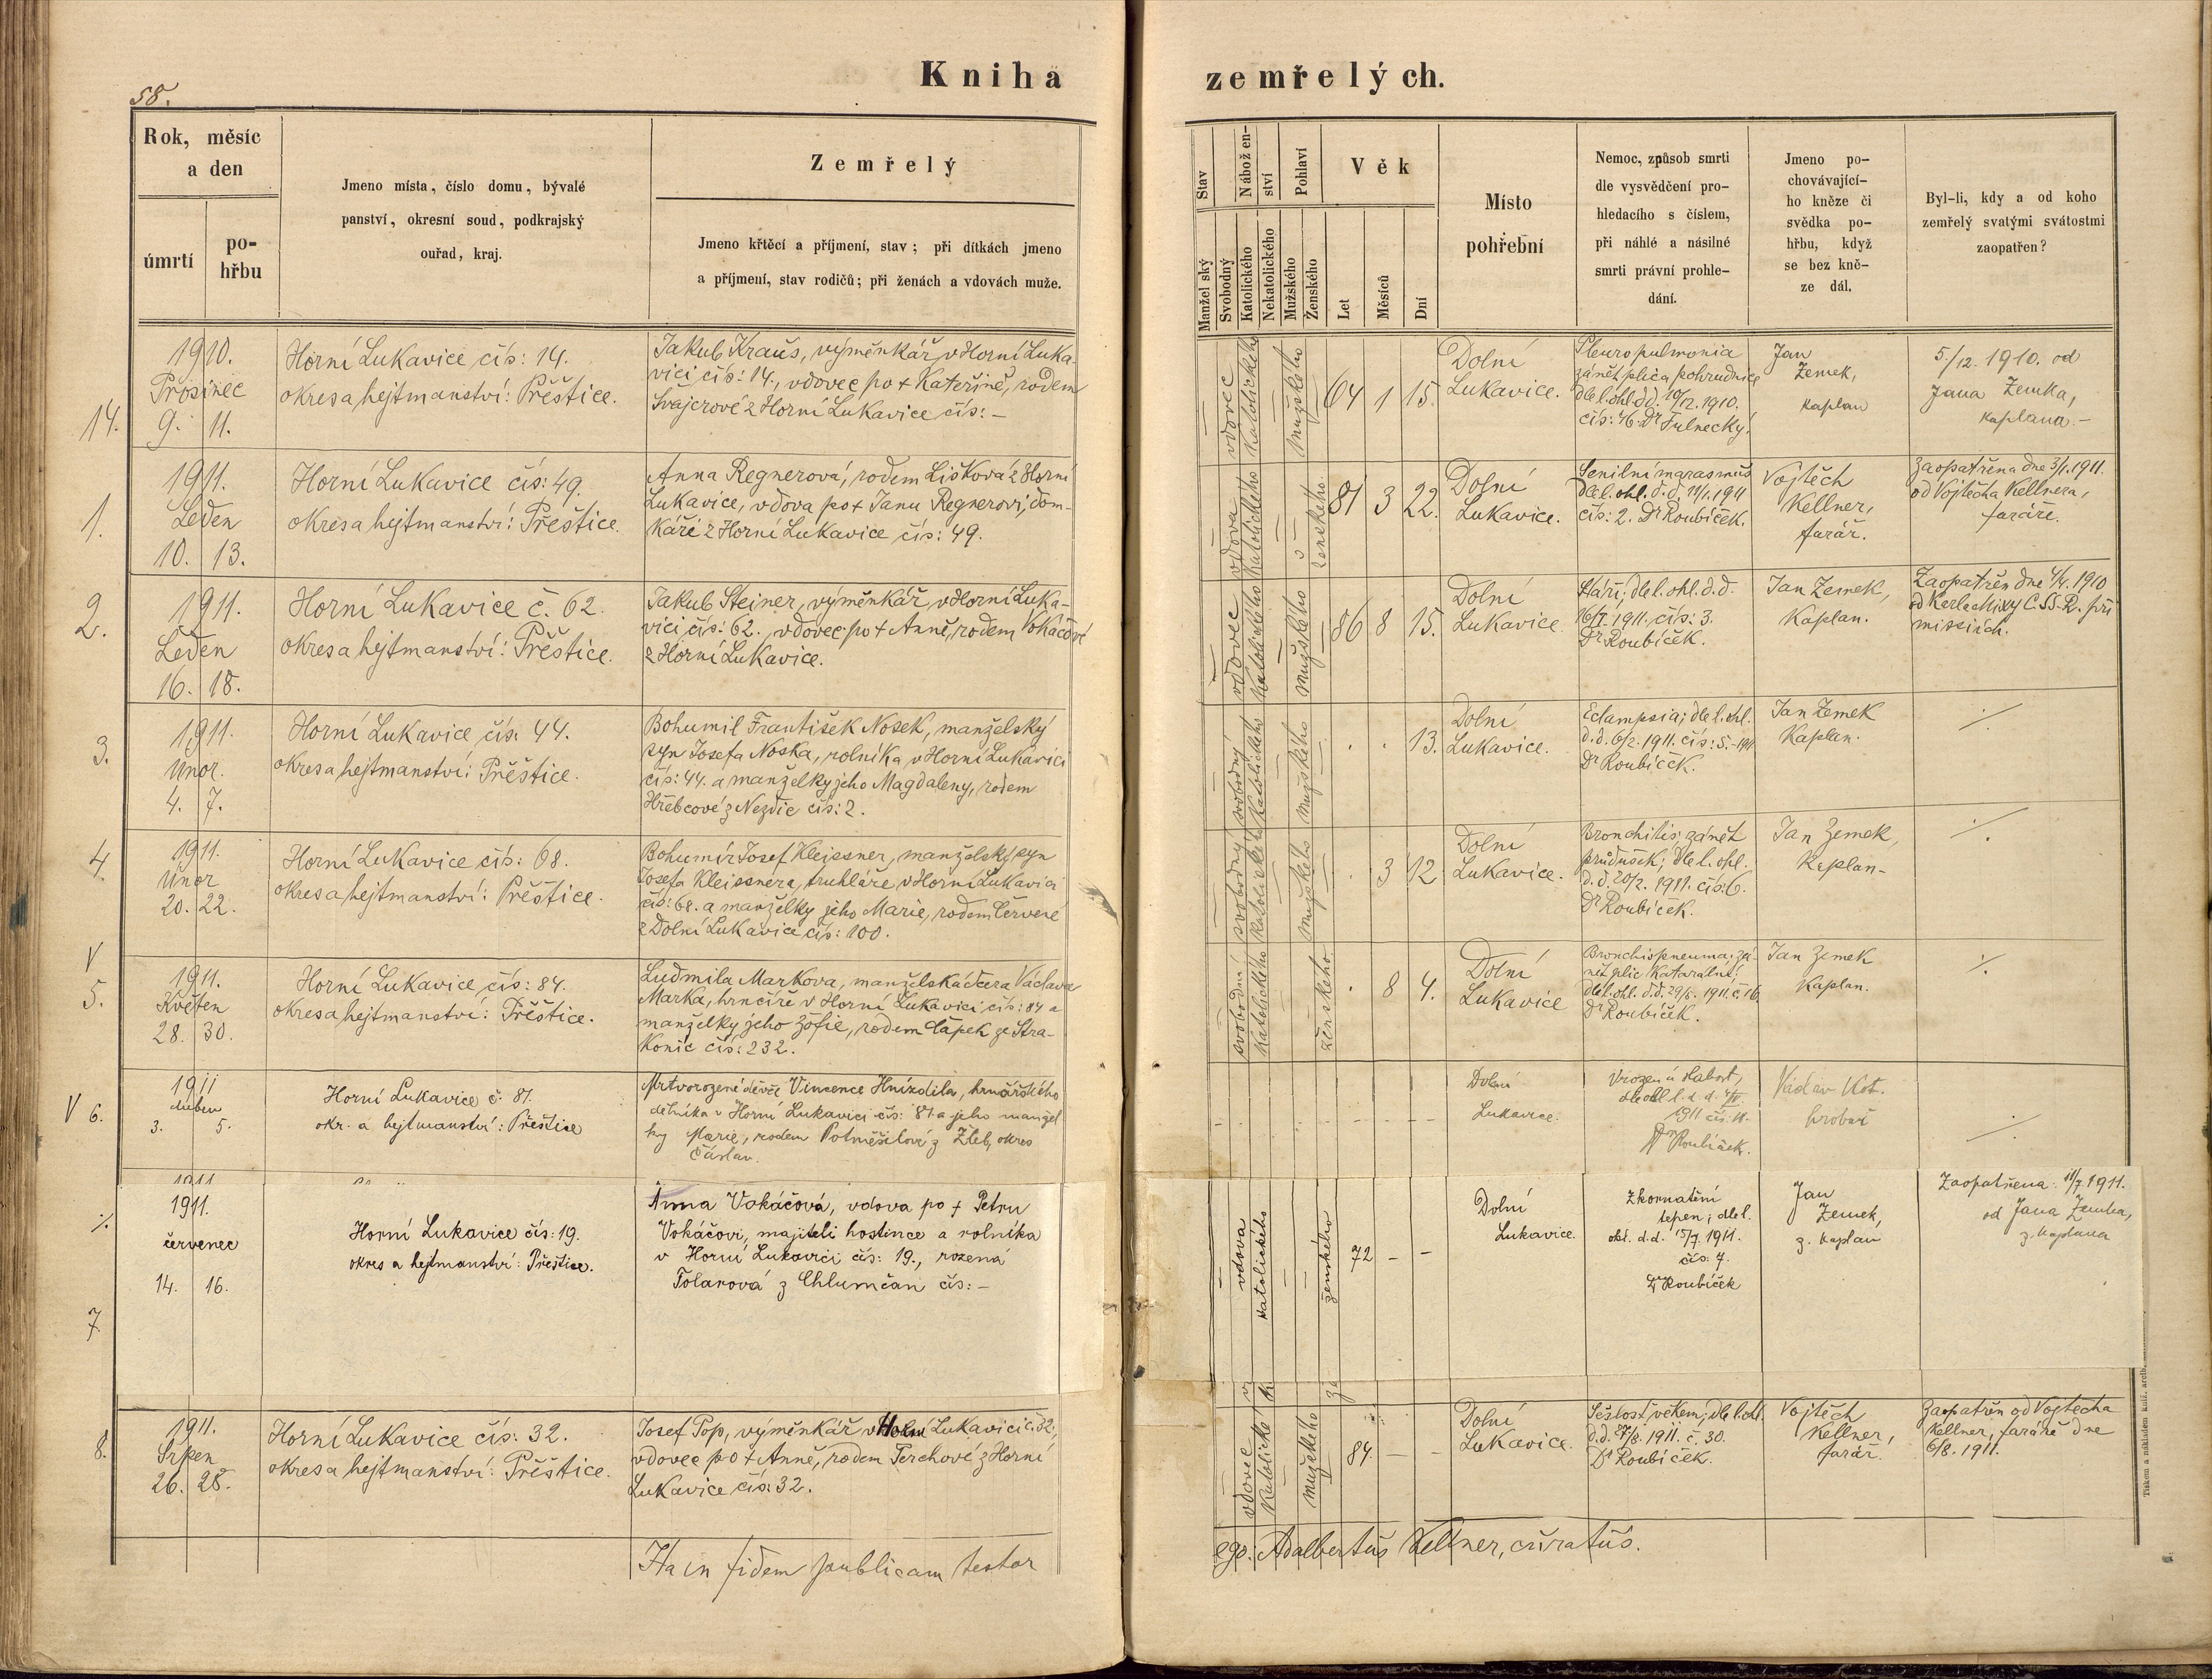 58.
Kniha zemřelých.
Rok, měsíc
a den
úmrtí
po-
hřbu
Jmeno místa, číslo domu, bývalé
panství, okresní soud, podkrajský
ouřad, kraj.
Zemřelý
Jmeno křtěcí a příjmení, stav; při dítkách jmeno
a příjmení, stav rodičů; při ženách a vdovách muže.
Stav
Manželský
Svobodný
Náboženství
Katolického
Nekatolického
Pohlaví
Mužského
Ženského
Věk
Let
Měsíců
Dní
Místo
pohřební
Nemoc, způsob smrti
dle vysvědčení pro-
hledacího s číslem,
při náhlé a násilné
smrti právní prohle-
dání.
Jmeno po-
chovávající-
ho kněze či
svědka po-
hřbu, když
se bez kně-
ze dál.
Byl-li, kdy a od koho
zemřelý svatými svátostmi
zaopatřen?
14.
1910.
Prosinec
9. 11.
Horní Lukavice čís: 14.
okres a hejtmanství: Přeštice.
Jakub Kraus, výměnkář v Horní Luka-
vici čís: 14., vdovec po + Kateřině, rodem
Švajcrové z Horní Lukavice čís: –
vdovec
katolického
mužského
64 1 15.
Dolní
Lukavice.
Pleuropulmonia
zánět plic a pohrudnice
dle l. ohl. d.d. 10/12. 1910.
čís: 46. Dr Fulnecký.
Jan
Zemek,
kaplan
5/12. 1910. od
Jana Zemka,
kaplana. –
1.
1911.
Leden
10. 13.
Horní Lukavice čís: 49.
okres a hejtmanství: Přeštice.
Anna Regnerová, rodem Lišková z Horní
Lukavice, vdova po + Janu Regnerovi, dom-
káři z Horní Lukavice čís: 49.
vdova
katolického
ženského
81 3 22.
Dolní
Lukavice.
Senilní marasmus
dle l. ohl. d.d. 11/1. 1911
čís: 2. Dr Roubíček.
Vojtěch
Kellner,
farář.
Zaopatřena dne 3/1. 1911.
od Vojtěcha Kellnera,
faráře.
2.
1911.
Leden
16. 18.
Horní Lukavice č. 62.
okres a hejtmanství: Přeštice.
Jakub Steiner, výměnkář v Horní Luka-
vici čís: 62., vdovec po + Anně, rodem Vokáčové
z Horní Lukavice.
vdovec
katolického
mužského
86 8 15.
Dolní
Lukavice
Stáří; dle l. ohl. d.d.
16/I. 1911. čís: 3.
Dr Roubíček.
Jan Zemek,
kaplan.
Zaopatřen dne 4/4. 1910
od Karla Mixy C. SS. R. při
missiích.
3.
1911.
Únor.
4. 7.
Horní Lukavice čís: 44.
okres a hejtmanství: Přeštice.
Bohumil František Nosek, manželský
syn Josefa Noska, rolníka v Horní Lukavici
čís: 44. a manželky jeho Magdaleny, rodem
Hřebcové z Nezdic čís: 2.
svobodný
katolického
mužského
. . 13.
Dolní
Lukavice.
Eclampsia; dle l. ohl.
d.d. 6/2. 1911. čís: 5. – 1911.
Dr Roubíček.
Jan Zemek
Kaplan.
./.
4.
1911.
Únor
20. 22.
Horní Lukavice čís: 68.
okres a hejtmanství: Přeštice.
Bohumír Josef Kleissner, manželský syn
Josefa Kleissnera, truhláře v Horní Lukavici
čís: 68. a manželky jeho Marie, rodem Červené
z Dolní Lukavice čís: 100.
svobodný
katolického
mužského
. 3 12
Dolní
Lukavice.
Bronchitis; zánět
průdušek; dle l. ohl.
d.d. 20/2. 1911. čís: 6.
Dr Roubíček.
Jan Zemek,
Kaplan-
./.
V
5.
1911.
Květen
28. 30.
Horní Lukavice, čís: 84.
okres a hejtmanství: Přeštice.
Ludmila Markova, manželská dcera Václava
Marka, hrnčíře v Horní Lukavici čís: 84 a
manželky jeho Žofie, rodem Čápek ze Stra-
konic čís: 232.
svobodní
katolického
ženského
. 8 4.
Dolní
Lukavice
Bronchispneuma; zá-
nět plic katarální
dle l. ohl. d.d. 29/5. 1911. č. 16.
Dr Roubíček.
Jan Zemek
Kaplan.
./.
V 6.
1911
duben
3. 5.
Horní Lukavice č. 81.
okr. a hejtmanství: Přeštice
Mrtvorozené děvče Vincence Hnízdila, hrnčířského
dělníka v Horní Lukavici čís: 81. a jeho manžel-
ky Marie, rodem Potměšilové z Žleb, okres
Čáslav.
Dolní
Lukavice.
Vrozená slabost,
dle ohl. l. d. d. 4/IV.
1911 čís. 11.
Dr Roubíček.
Václav Kot.
hrobař
./.
./.
7.
1911.
červenec
14. 16.
Horní Lukavice čís: 19.
okres a hejtmanství: Přeštice.
Anna Vokáčová, vdova po + Petru
Vokáčovi, majiteli hostince a rolníka
v Horní Lukavici čís: 19., rozená
Tolarová z Chlumčan čís: –
vdova
katolického
ženského
72 – –
Dolní
Lukavice.
Zkornatění
tepen; dle l.
ohl. d.d. 15/7. 1911.
čís. 7.
Dr Roubíček
Jan
Zemek,
z. kaplan
Zaopatřena 11/7. 1911.
od Jana Zemka,
z. kaplana
8.
1911.
Srpen
26. 28.
Horní Lukavice čís: 32.
okres a hejtmanství: Přeštice.
Josef Pop, výměnkář v Horní Lukavici č. 32.,
vdovec po + Anně, rodem Terchové z Horní
Lukavice čís: 32.
vdovec
katolického
mužského
84. – –
Dolní
Lukavice.
Sešlost věkem; dle l. ohl.
d.d. 27/8. 1911. č. 30.
Dr Roubíček.
Vojtěch
Kellner,
farář.
Zaopatřen od Vojtěcha
Kellner, faráře dne
6/8. 1911.
Ita in fidem publicam testor
ego: Adalbertus Kellner, curatus.